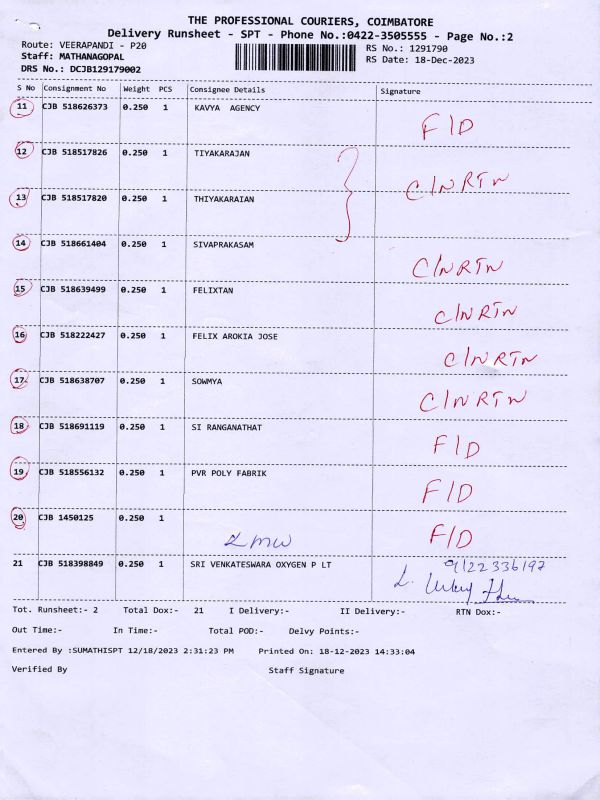 THE PROFESSIONAL COURIERS, COIMBATORE
Delivery Runsheet - SPT - Phone No.:0422-3505555 - Page No.:2
Route: VEERAPANDI - P20 RS No.: 1291790
Staff: MATHANAGOPAL RS Date: 18-Dec-2023
DRS No.: DCJB129179002
S No Consignment No Weight PCS Consignee Details Signature
11 CJB 518626373 0.250 1 KAVYA AGENCY F/D
12 CJB 518517826 0.250 1 TIYAKARAJAN
13 CJB 518517820 0.250 1 THIYAKARAIAN C/N RTN
14 CJB 518661404 0.250 1 SIVAPRAKASAM C/N RTN
15 CJB 518639499 0.250 1 FELIXTAN C/N RTN
16 CJB 518222427 0.250 1 FELIX AROKIA JOSE C/N RTN
17 CJB 518638707 0.250 1 SOWMYA C/N RTN
18 CJB 518691119 0.250 1 SI RANGANATHAT F/D
19 CJB 518556132 0.250 1 PVR POLY FABRIK F/D
20 CJB 1450125 0.250 1 LMW F/D
21 CJB 518398849 0.250 1 SRI VENKATESWARA OXYGEN P LT 9122336197
Tot. Runsheet:- 2 Total Dox:- 21 I Delivery:- II Delivery:- RTN Dox:-
Out Time:- In Time:- Total POD:- Delvy Points:-
Entered By :SUMATHISPT 12/18/2023 2:31:23 PM Printed On: 18-12-2023 14:33:04
Verified By Staff Signature